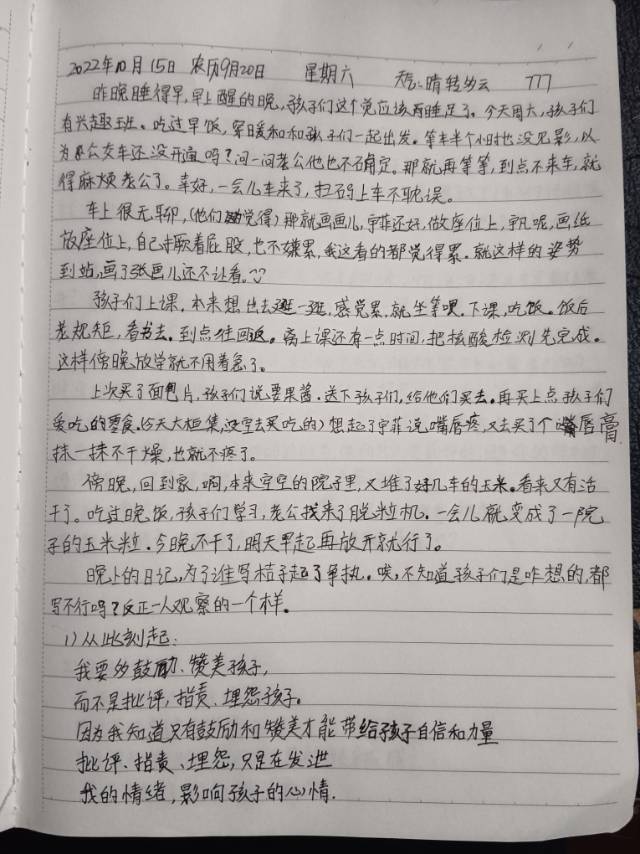 2022年10月15日 农历9月20日 星期六 天气:晴转多云 777
昨晚睡得早,早上醒的晚,孩子们这个觉应该再睡足了。今天周六,孩子们
有兴趣班。吃过早饭,穿暖和和孩子们一起出发。等车半个小时也没见影,以
为公交车还没开通吗?问一问老公他也不确定。那就再等等,到点不来车,就
得麻烦老公了。幸好,一会儿车来了,扫码上车不耽误。
车上很无聊,(他们觉得)那就画画儿,宇菲还好,做座位上,宇凡呢,画纸
放座位上,自己撅着屁股,也不嫌累,我这看的都觉得累。就这样的姿势
到站,画了张画儿还不让看。
孩子们上课。本来想出去逛一逛,感觉累,就坐等呗。下课,吃饭。饭后
老规矩,看书去。到点往回返。离上课还有一点时间,把核酸检测先完成。
这样傍晚放学就不用着急了。
上次买了面包片,孩子们说要果酱。送下孩子们,给他们买去。再买上点孩子们
爱吃的零食。(今天大桓集,这里去买吃的)想起了宇菲说嘴唇疼,又去买了个嘴唇膏
抹一抹不干燥,也就不疼了。
傍晚,回到家,啊,本来空空的院子里,又堆了好几车的玉米。看来又有活
干了。吃过晚饭,孩子们学习,老公找来了脱粒机。一会儿就变成了一院
子的玉米粒。今晚不干了,明天早起再放开就行了。
晚上的日记,为了谁写桔子起了争执。唉,不知道孩子们是咋想的,都
写不行吗?反正一人观察的一个样。
1)从此刻起:
我要多鼓励、赞美孩子,
而不是批评,指责、埋怨孩子。
因为我知道只有鼓励和赞美才能带给孩子自信和力量
批评、指责、埋怨,只是在发泄
我的情绪,影响孩子的心情.